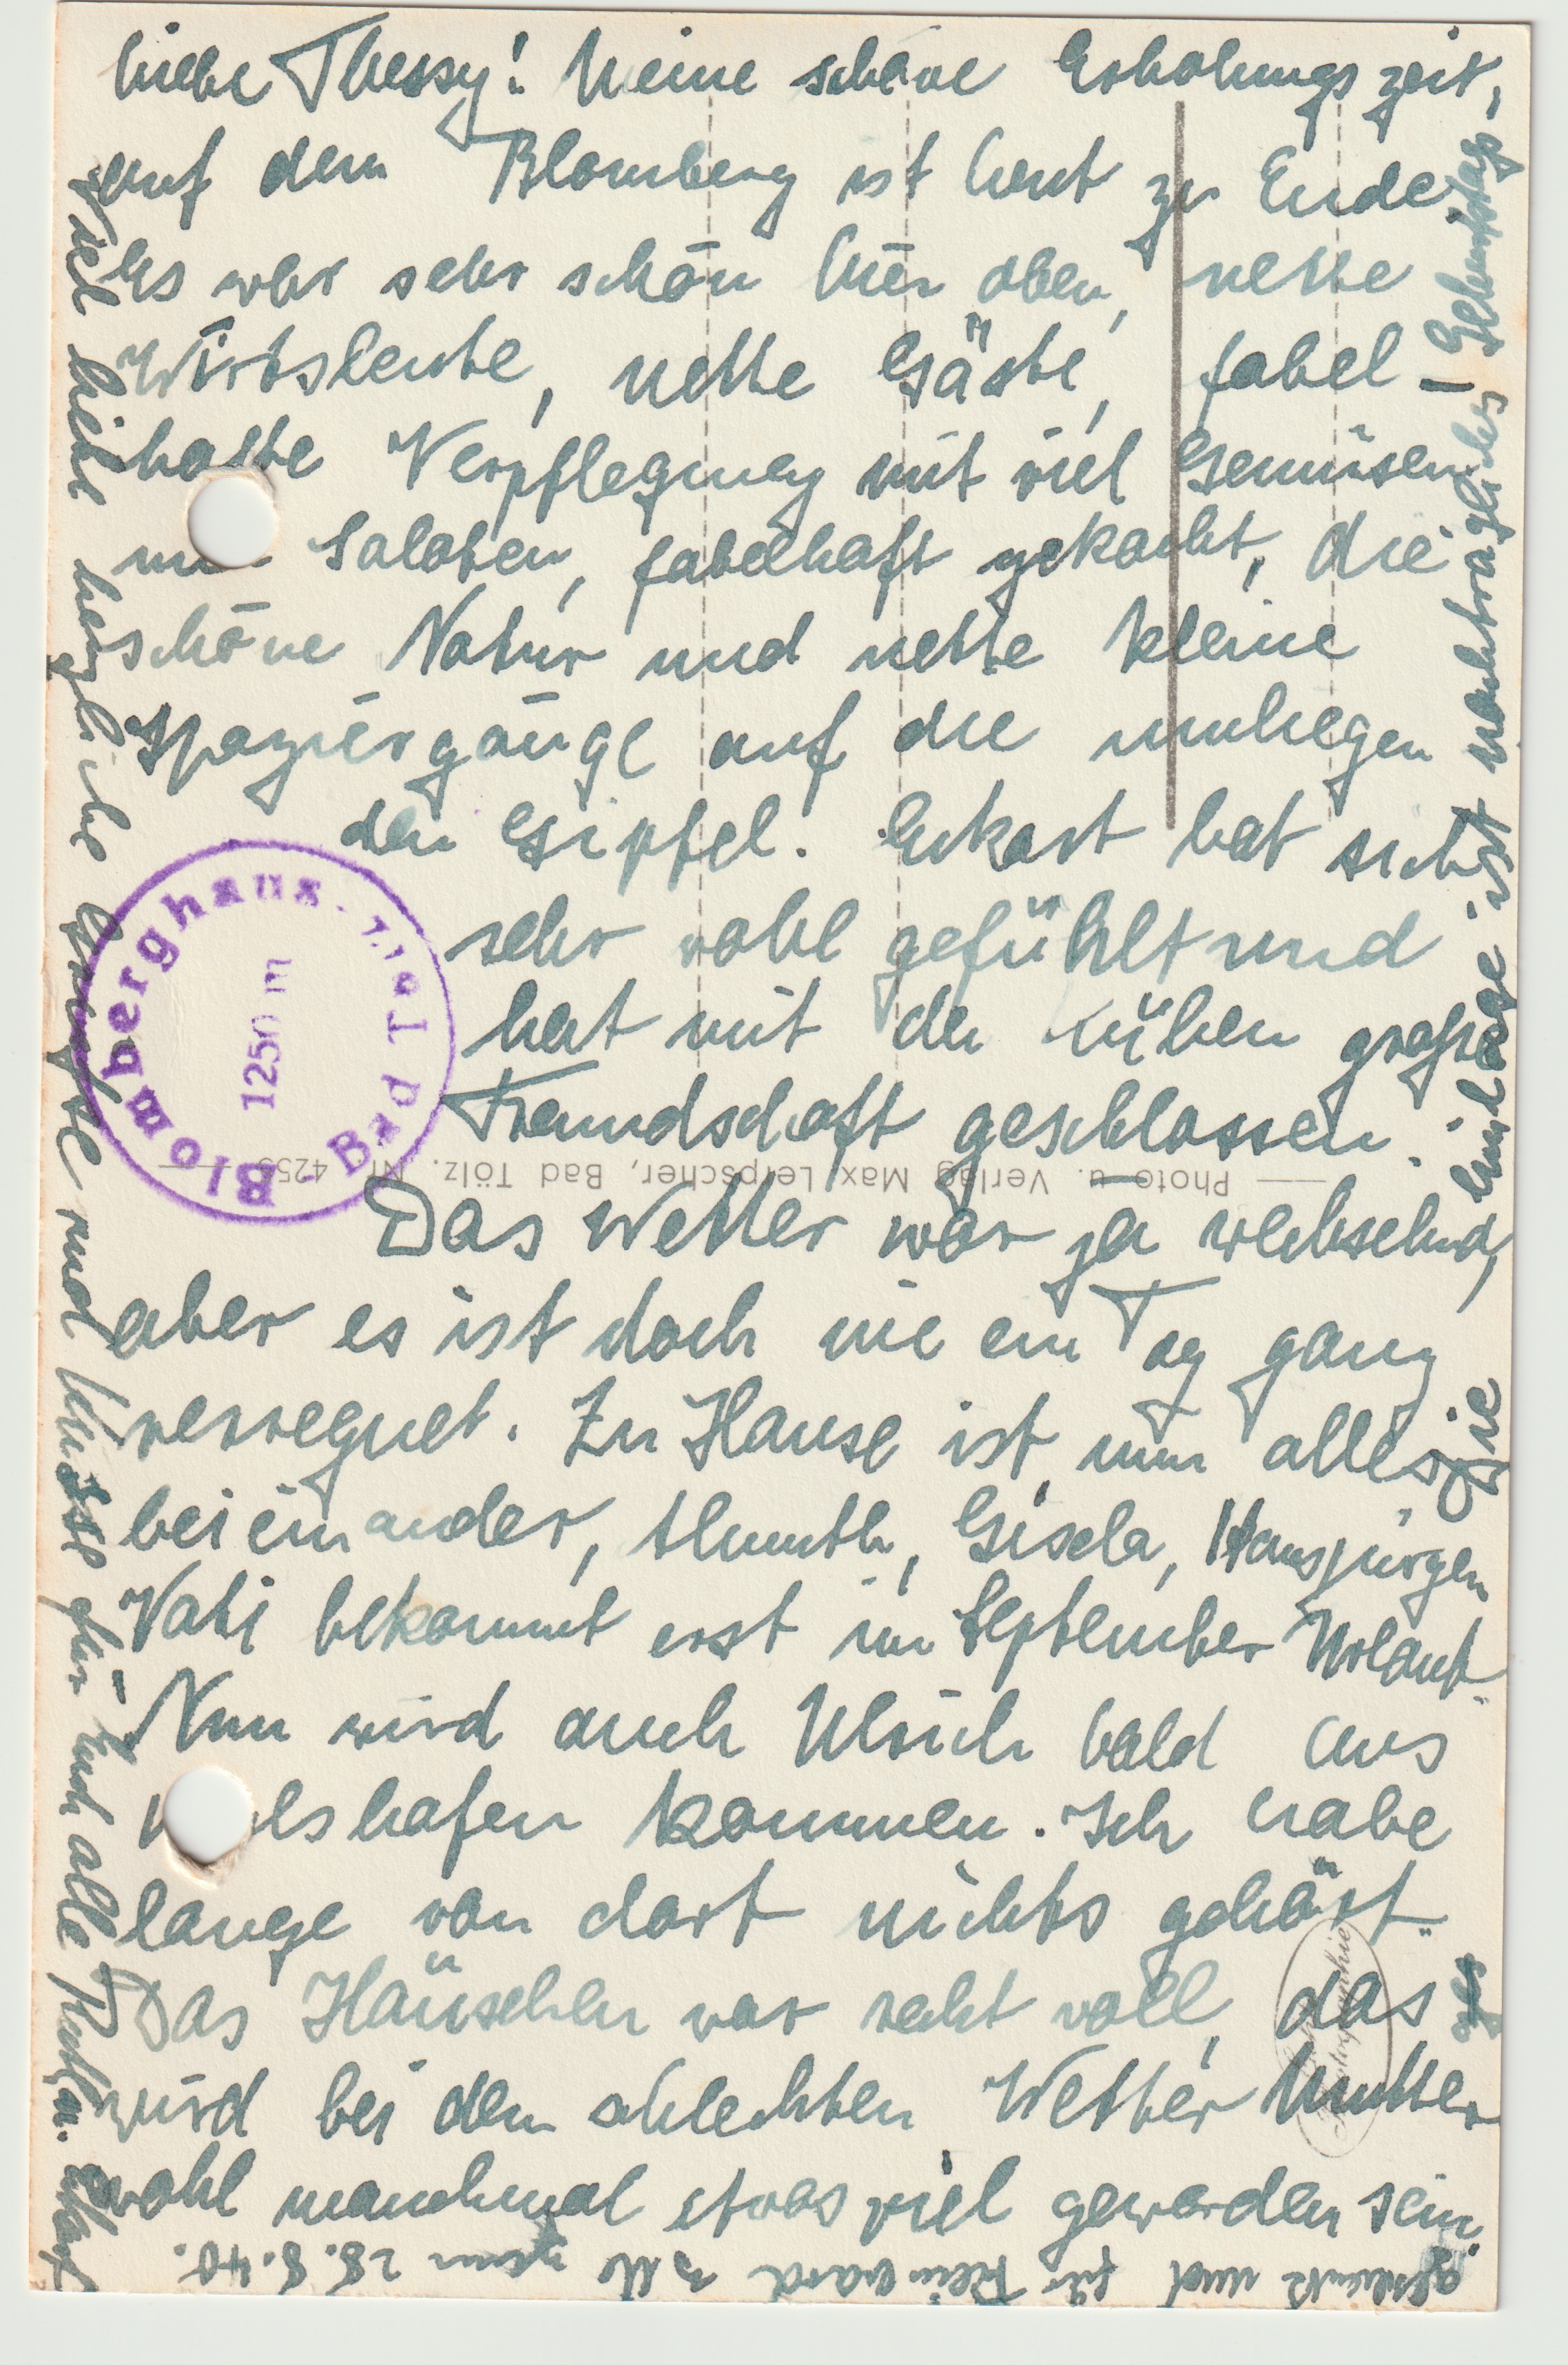 Liebe Thessy! Meine schöne Erholungszeit,
auf dem Blomberg ist heut zu Ende.
Es war sehr schön hier oben, nette
Wirtsleute, nette Gäste, fabel-
hafte Verpflegung mit viel Gemüsen
Salaten, fabelhaft gekocht, die
schöne Natur und nette kleine
Spaziergänge auf die umliegen
den Gipfel. Eckart hat sich
sehr wohl gefühlt und
hat mit den Kühen große
Freundschaft geschlossen.
Das Wetter war ja wechselnd,
aber es ist doch nie ein Tag ganz
verregnet. Zu Hause ist nun alles
beieinander, Gisela, Hansjürgen
Vati bekommt erst im September Urlaub.
Nun wird auch Ulrich bald aus
kommen. Ich habe
lange von dort nichts gehört.
Das Häuschen war recht voll, das
wird bei dem schlechten Wetter Mutter
wohl manchmal etwas viel geworden sein.
Viel liebe herzliche Grüße und Küsse für Euch alle
Die Einlage ist nachträgliches Geburtstags-
geschenk und für Reinward 3 M zum 28.8.40.
Blomberghaus - Bad Tölz
1250 m
Photo u. Verlag Max Leipscher, Bad Tölz. Nr. 4255